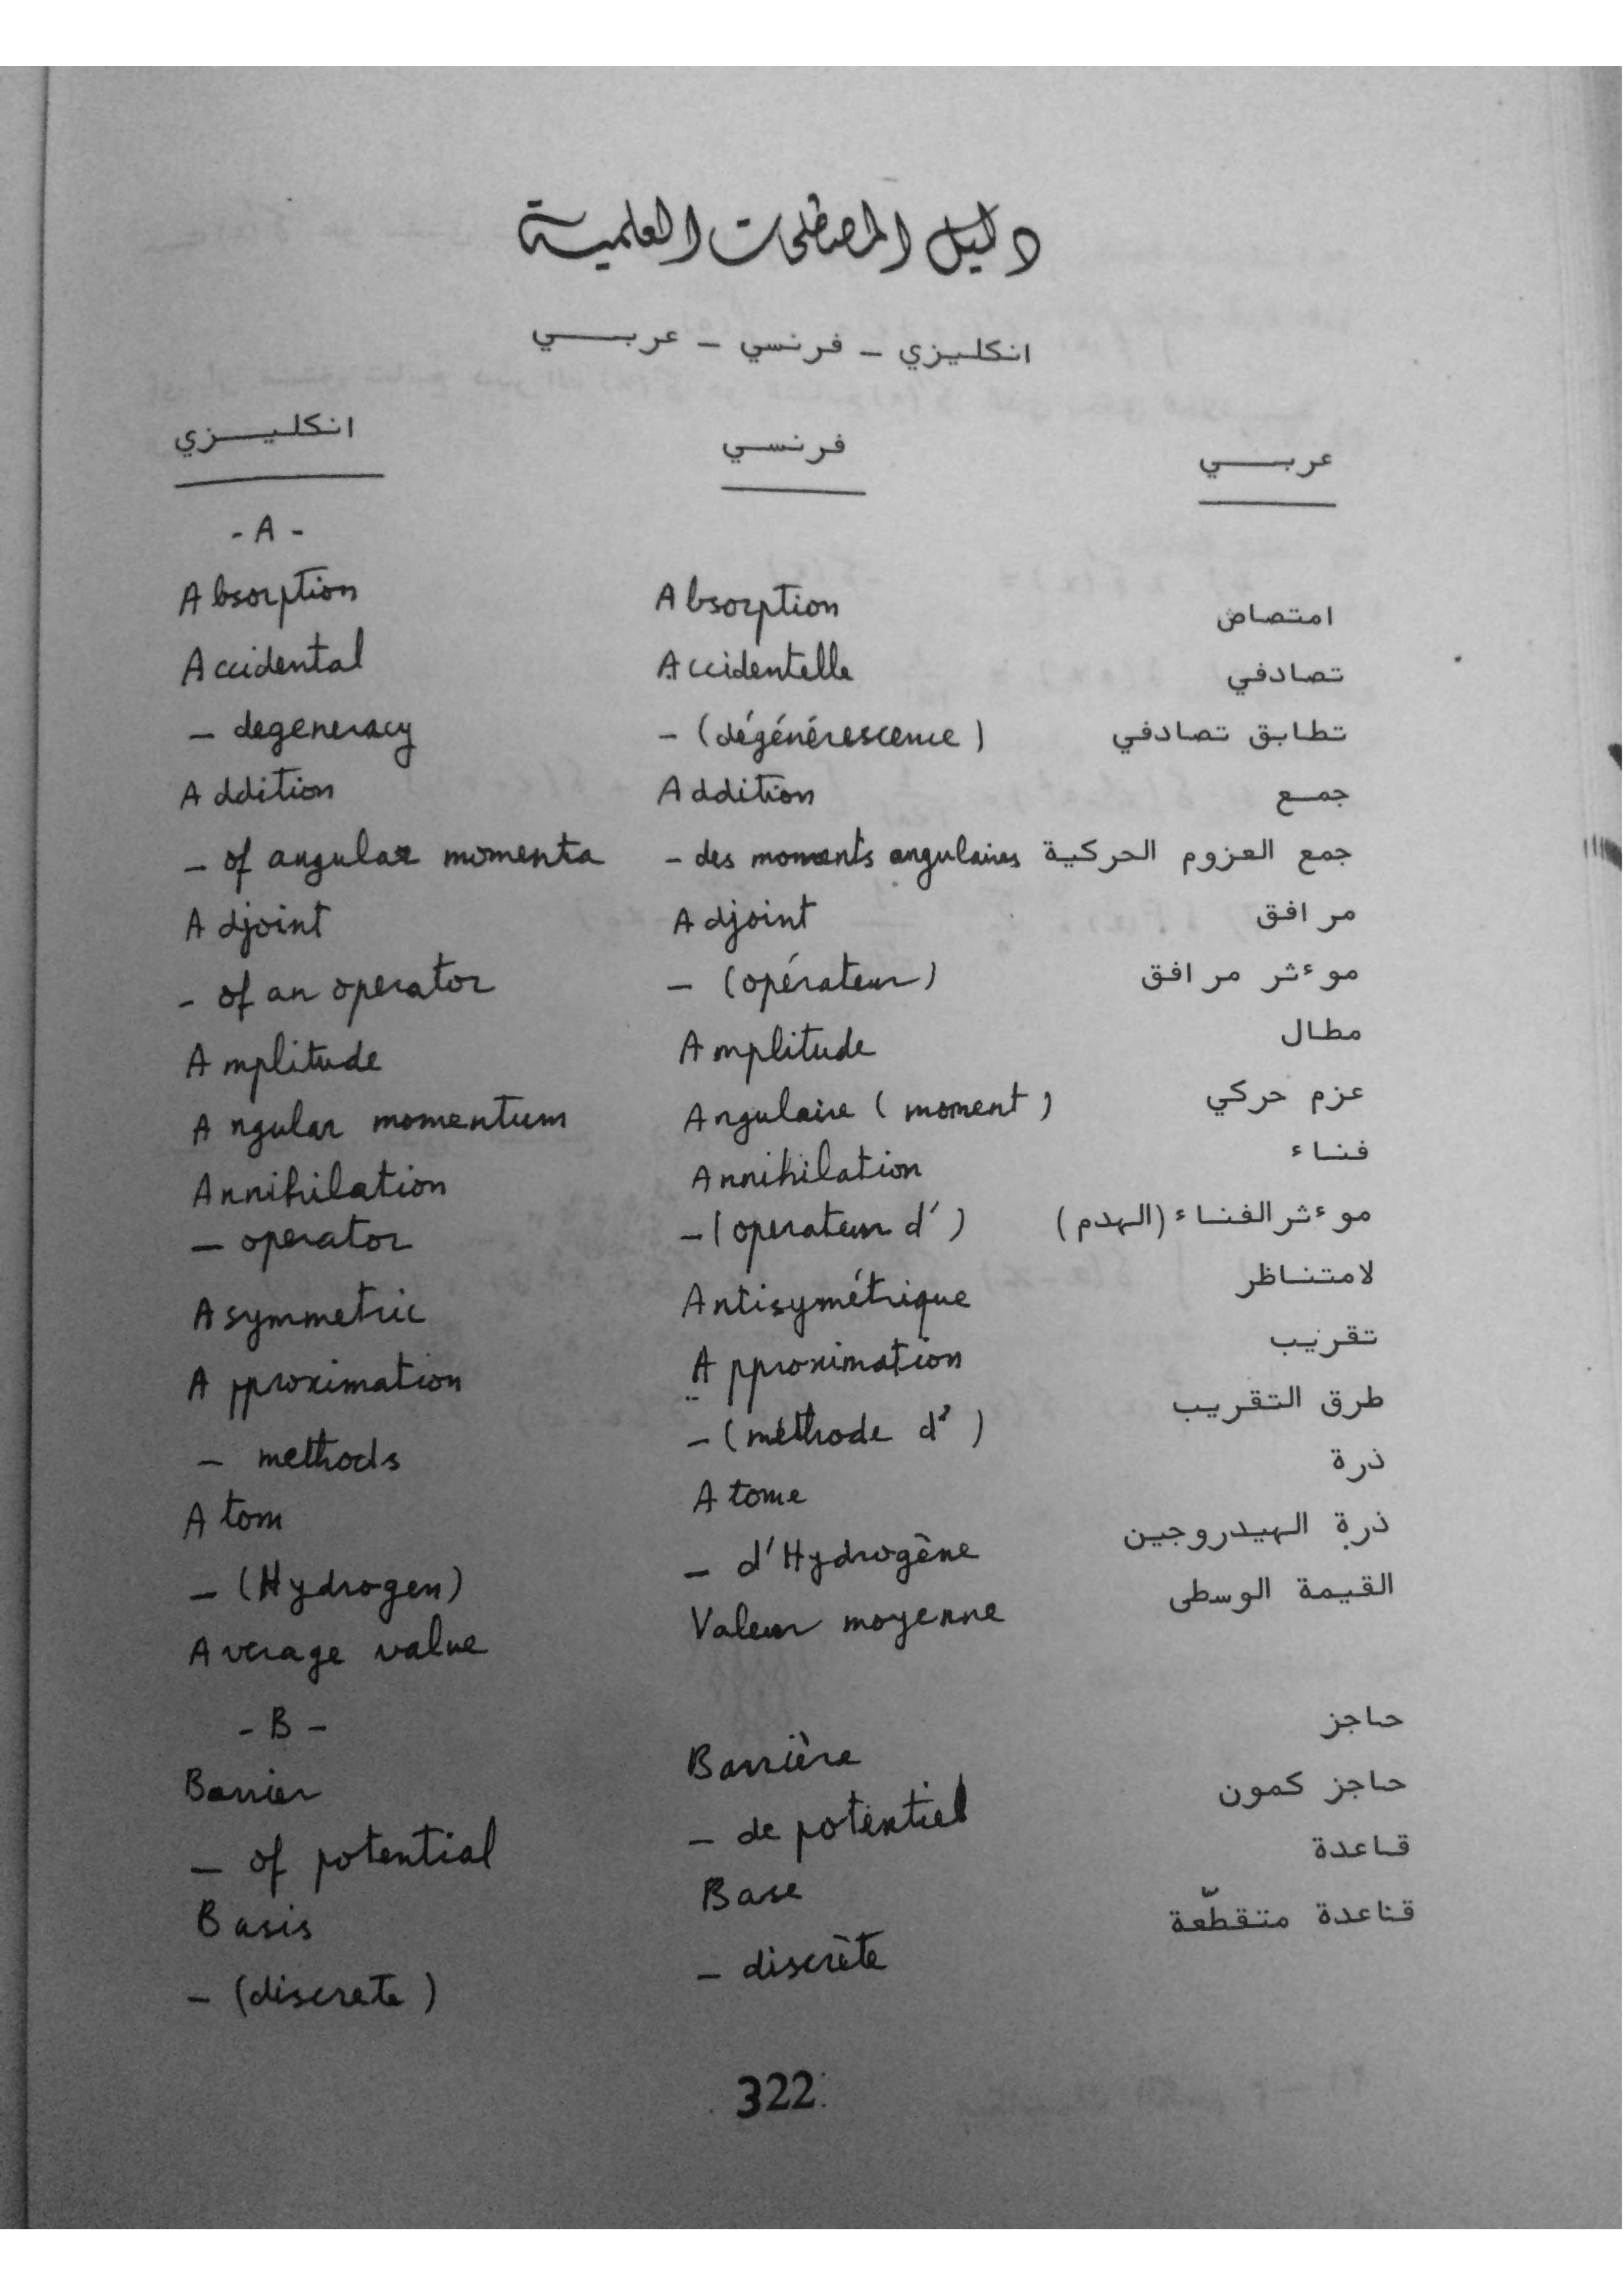 دليل المصطلحات العلمية
انكليزي - فرنسي - عربي
انكليزي فرنسي عربي
- A -
Absorption Absorption امتصاص
Accidental Accidentelle تصادفي
- degeneracy - (dégénérescence) تطابق تصادفي
Addition Addition جمع
- of angular momenta - des moments angulaires جمع العزوم الحركية
Adjoint Adjoint مرافق
- of an operator - (opérateur) موءثر مرافق
Amplitude Amplitude مطال
Angular momentum Angulaire (moment) عزم حركي
Annihilation Annihilation فناء
- operator - (operateur d') موءثر الفناء (الهدم)
Asymmetric Antisymétrique لامتناظر
Approximation Approximation تقريب
- methods - (méthode d') طرق التقريب
Atom Atome ذرة
- (Hydrogen) - d'Hydrogène ذرة الهيدروجين
Average value Valeur moyenne القيمة الوسطى
- B -
Barrier Barrière حاجز
- of potential - de potentiel حاجز كمون
Basis Base قاعدة
- (discrete) - discrète قاعدة متقطّعة
322